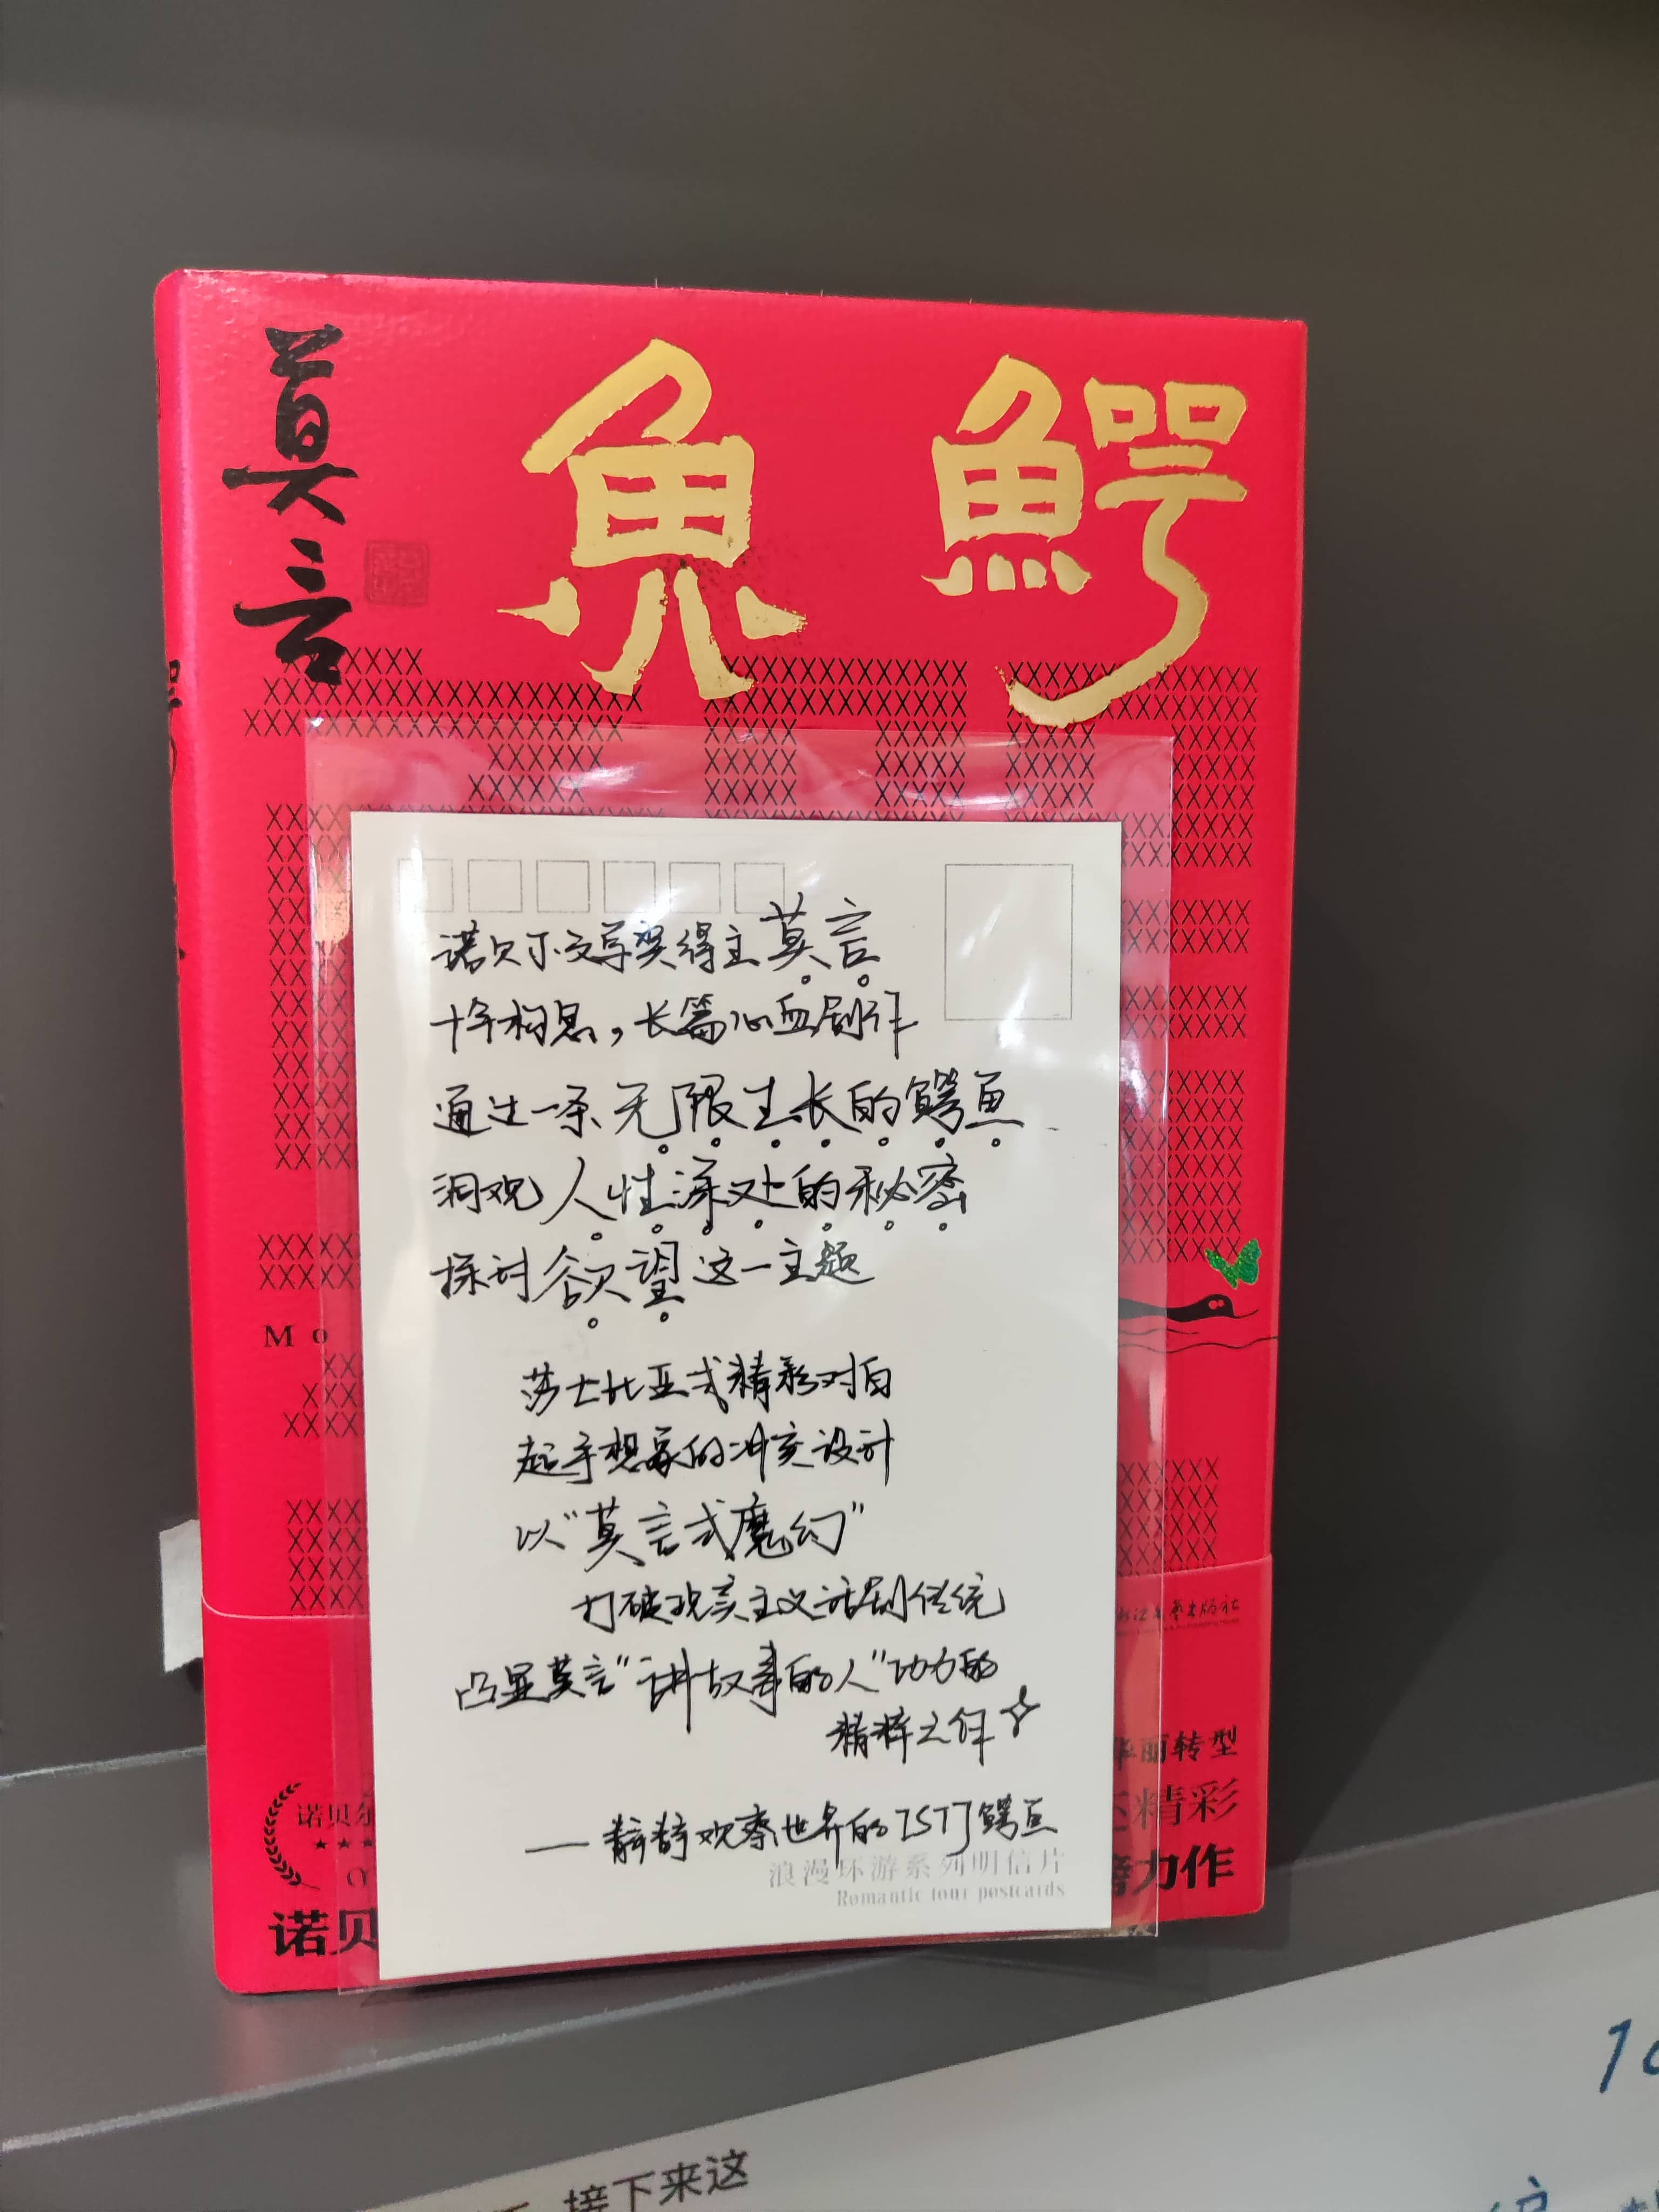 鳄鱼
莫言
诺贝尔文学奖得主莫言
十年构思，长篇心血剧作
通过一条无限生长的鳄鱼
洞观人性深处的秘密
探讨欲望这一主题
莎士比亚式精彩对白
超乎想象的冲突设计
以“莫言式魔幻”
打破现实主义话剧传统
凸显莫言“讲故事的人”功力的
精粹之作
——静静观察世界的ISTJ鳄鱼
浪漫环游系列明信片
Romantic tour postcards
Mo
文艺出版社
华丽转型
精彩
力作
诺贝尔
诺贝
接下来这